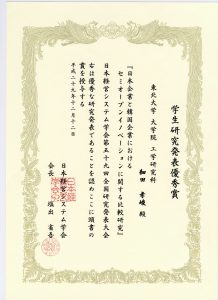 学生研究発表優秀賞
東北大学 大学院 工学研究科
和田 孝峻 殿
『日本企業と韓国企業における
セミオープンイノベーションに関する比較研究』
日本経営システム学会第五十九回全国研究発表大会
右は優秀な研究発表であることを認めここに頭書の
賞を授与する
平成二十九年十二月十二日
日本経営システム学会
会長